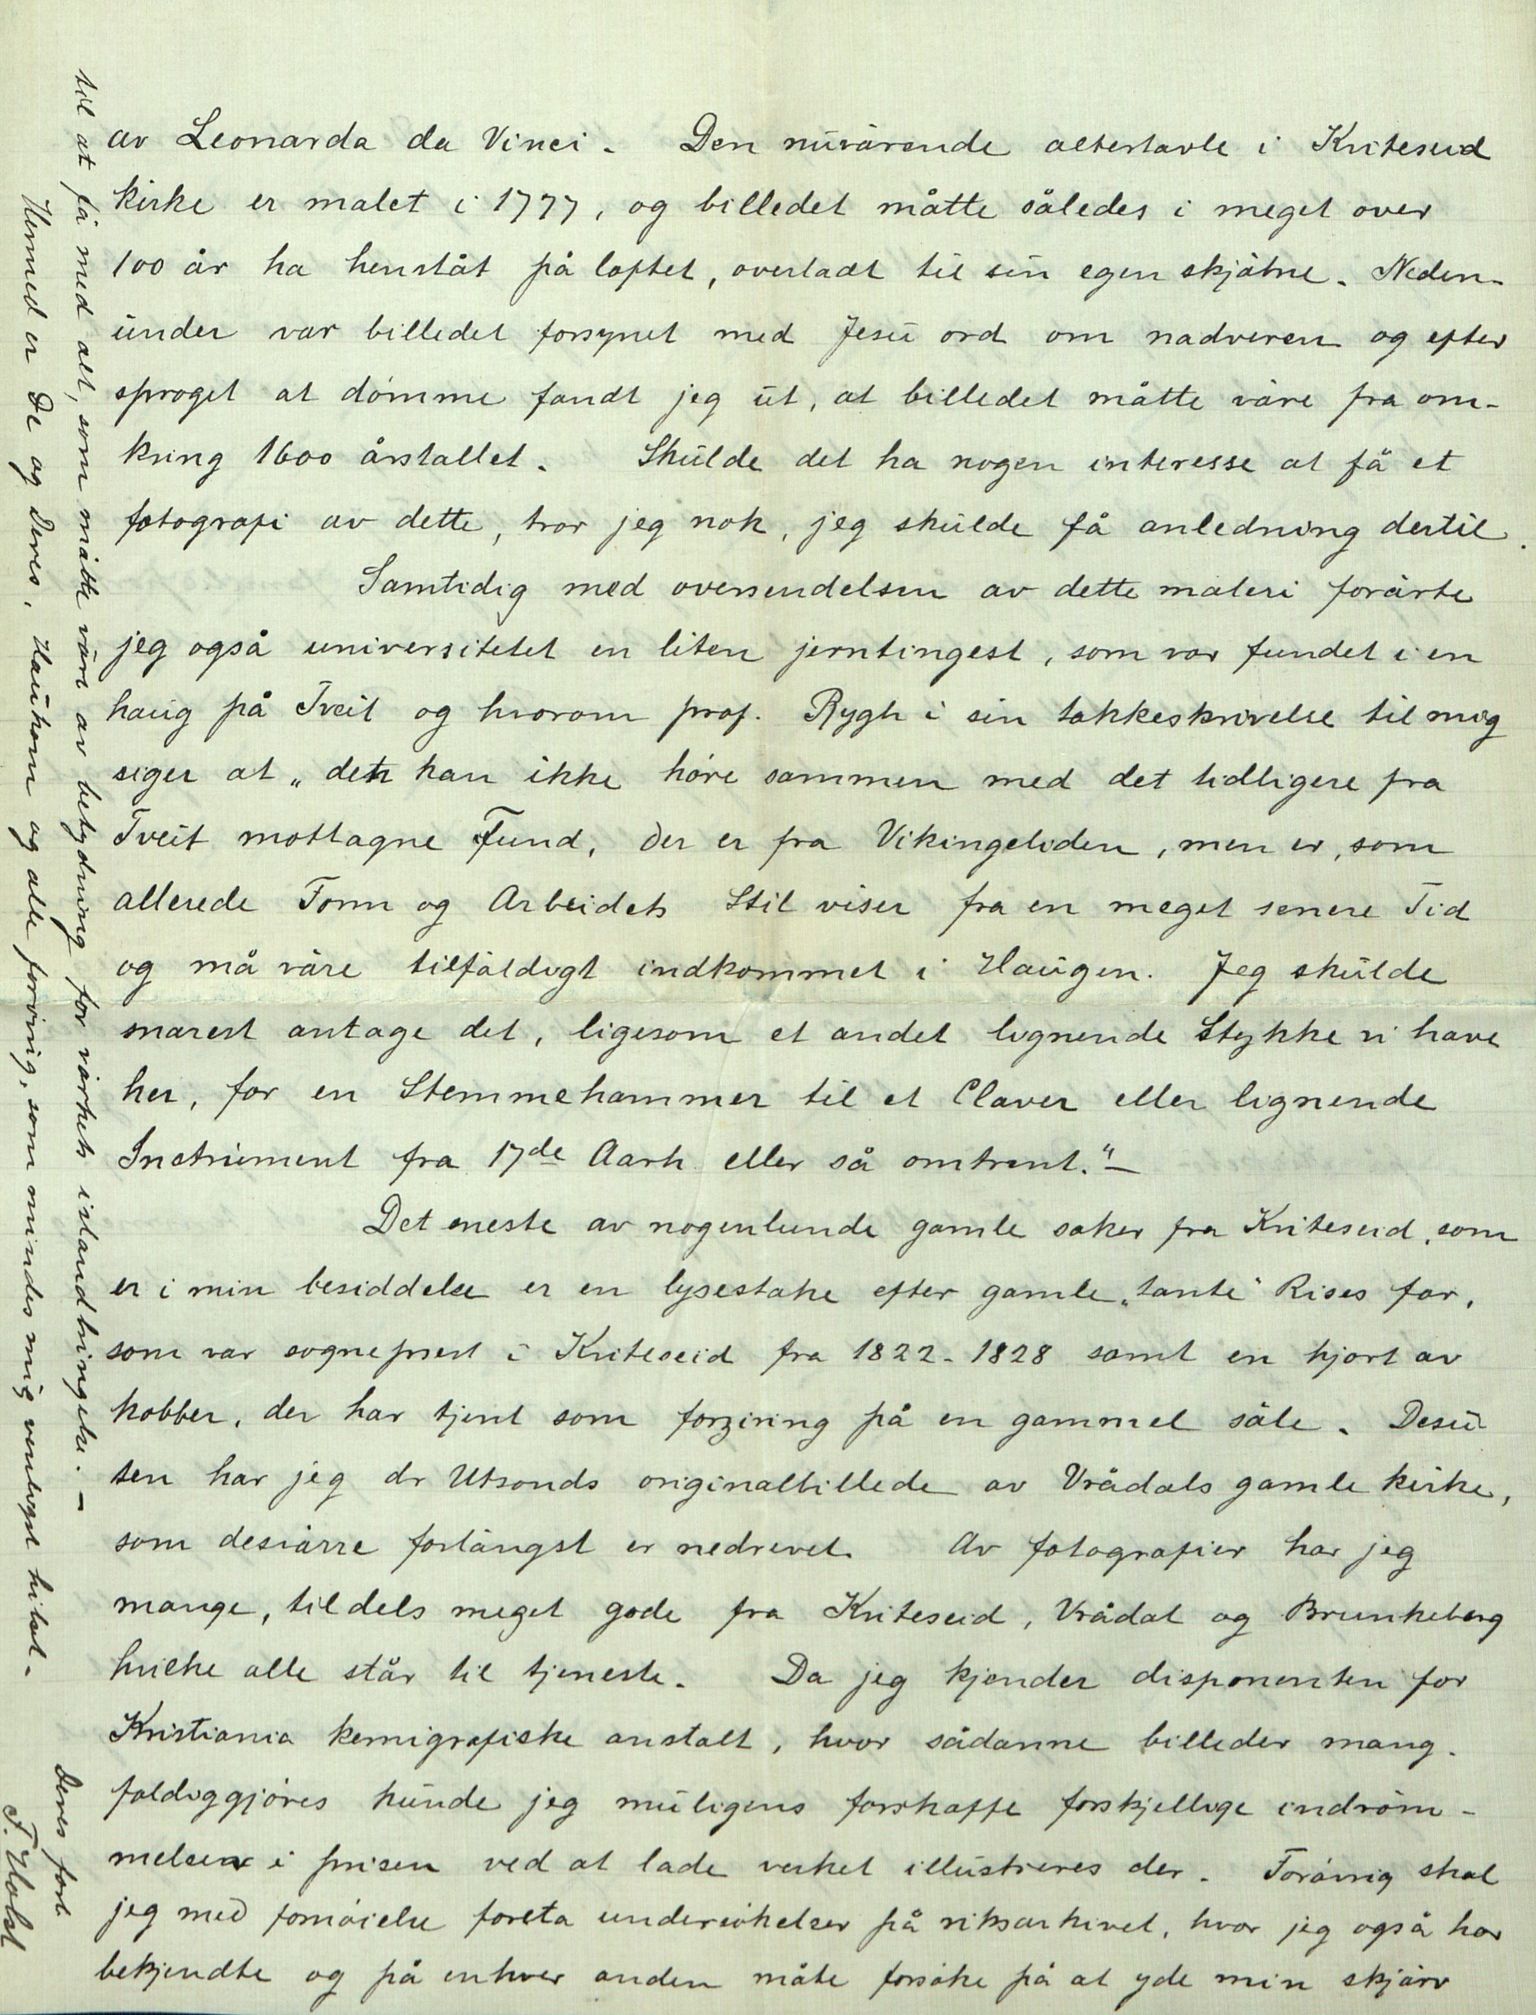 av Leonarda da Vinci. Den nuværende altertavle i Kviteseid
kirke er malet i 1777, og billedet måtte således i meget over
100 år ha henståt på loftet, overladt til sin egen skjæbne. Neden-
under var billedet forsynet med Jesu ord om nadveren og efter
sproget at dømme fandt jeg ut, at billedet måtte være fra om-
kring 1600 årstallet. Skulde det ha nogen interesse at få et
fotografi av dette, tror jeg nok, jeg skulde få anledning dertil.
Samtidig med oversendelsen av dette maleri forærte
jeg også universitetet en liten jerntingest, som var fundet i en
haug på Tveit og hvorom prof. Rygh i sin takkeskrivelse til mig
siger at „den kan ikke høre sammen med det tidligere fra
Tveit mottagne Fund, der er fra Vikingetiden, men er, som
allerede Form og Arbeidets Stil viser fra en meget senere Tid
og må være tilfældigt indkommet i Haugen. Jeg skulde
snarest antage det, ligesom et andet lignende Stykke vi have
her, for en Stemmehammer til et Claver eller lignende
Instrument fra 17de Aarh eller så omtrent." —
Det eneste av nogenlunde gamle saker fra Kviteseid, som
er i min besiddelse er en lysestake efter gamle „tante" Rises far,
som var sogneprest i Kviteseid fra 1822-1828 samt en hjort av
kobber, der har tjent som forziring på en gammel sæle. Desu-
ten har jeg dr Utsonds originalbillede av Vrådals gamle kirke,
som desværre forlængst er nedrevet. Av fotografier har jeg
mange, tildels meget gode fra Kviteseid, Vrådal og Brunkeberg
hvilke alle står til tjeneste. Da jeg kjender disponenten for
Kristiania kemigrafiske anstalt, hvor sådanne billeder mang-
foldiggjøres kunde jeg muligens forskaffe forskjellige indrøm-
melser i prisen ved at lade verket illustreres der. Forøvrig skal
jeg med fornøielse foreta undersøkelser på riksarkivet, hvor jeg også har
bekjendte og på enhver anden måte forsøke på at yde min skjærv
til at få med alt, som måtte være av betydning for værkets istandbringelse. —
Hermed er De og Deres, Haukom og alle forøvrig, som mindes mig venligst hilset.
Deres forb
F. Holst